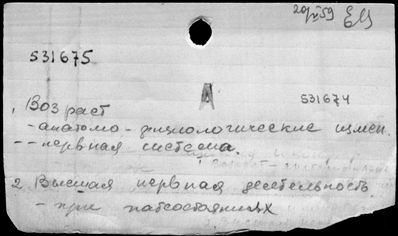 531675
A
531674
1. Возраст
- анатомо-физиологические измен.
-- нервная система.
2. Высшая нервная деятельность
- при патсостояниях